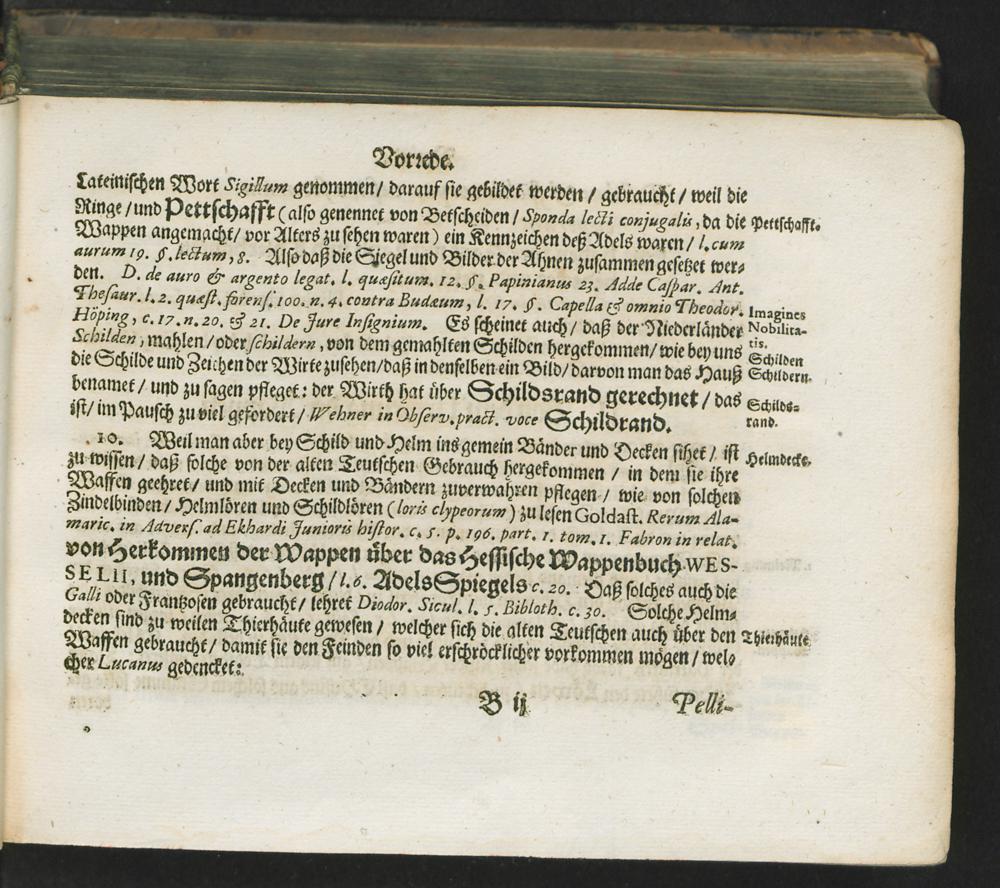 Vorrede.
Lateinischen Wort Sigillum genommen / darauf sie gebildet werden / gebraucht / weil die
Ringe / und Pettschafft (also genennet von Betscheiden / Sponda lecti conjugalis, da die
Pettschafft.
Wappen angemacht / vor Alters zu sehen waren) ein Kennzeichen deß Adels waren / l. cum
aurum 19. §. lectum, 8. Also daß die Siegel und Bilder der Ahnen zusammen gesetzet wer-
den. D. de auro & argento legat. l. quæsitum. 12. §. Papinianus 23. Adde Caspar. Ant.
Thesaur. l. 2. quæst. forens. 100. n. 4. contra Budæum, l. 17. §. Capella & omnio Theodor.
Imagines
Höping, c. 17. n. 20. & 21. De Jure Insignium. Es scheinet auch / daß der Niederländer
Nobilita-
tis.
Schilden, mahlen / oder schildern, von dem gemahlten Schilden hergekommen / wie bey uns
Schilden
die Schilde und Zeichen der Wirte zusehen / daß in denselben ein Bild / darvon man das Hauß
Schildern.
benamet / und zu sagen pfleget: der Wirth hat über Schildsrand gerechnet / das
Schilds-
ist / im Pausch zu viel gefordert / Wehner in Observ. pract. voce Schildrand.
rand.
10. Weil man aber bey Schild und Helm ins gemein Bänder und Decken sihet / ist
zu wissen / daß solche von der alten Teutschen Gebrauch hergekommen / in dem sie ihre
Helmdecke.
Waffen geehret / und mit Decken und Bändern zuverwahren pflegen / wie von solchen
Zindelbinden / Helmlören und Schildlören (loris clypeorum) zu lesen Goldast. Rerum Ala-
maric. in Advers. ad Ekhardi Junioris histor. c. 5. p. 196. part. 1. tom. 1. Fabron in relat.
von Herkommen der Wappen über das Hessische Wappenbuch WES-
SELII, und Spangenberg / l. 6. AdelsSpiegels c. 20. Daß solches auch die
Galli oder Frantzosen gebraucht / lehret Diodor. Sicul. l. 5. Biblioth. c. 30. Solche Helm-
decken sind zu weilen Thierhäute gewesen / welcher sich die alten Teutschen auch über den
Thierhäute
Waffen gebraucht / damit sie den Feinden so viel erschröcklicher vorkommen mögen / wel-
cher Lucanus gedencket:
B ij
Pelli-